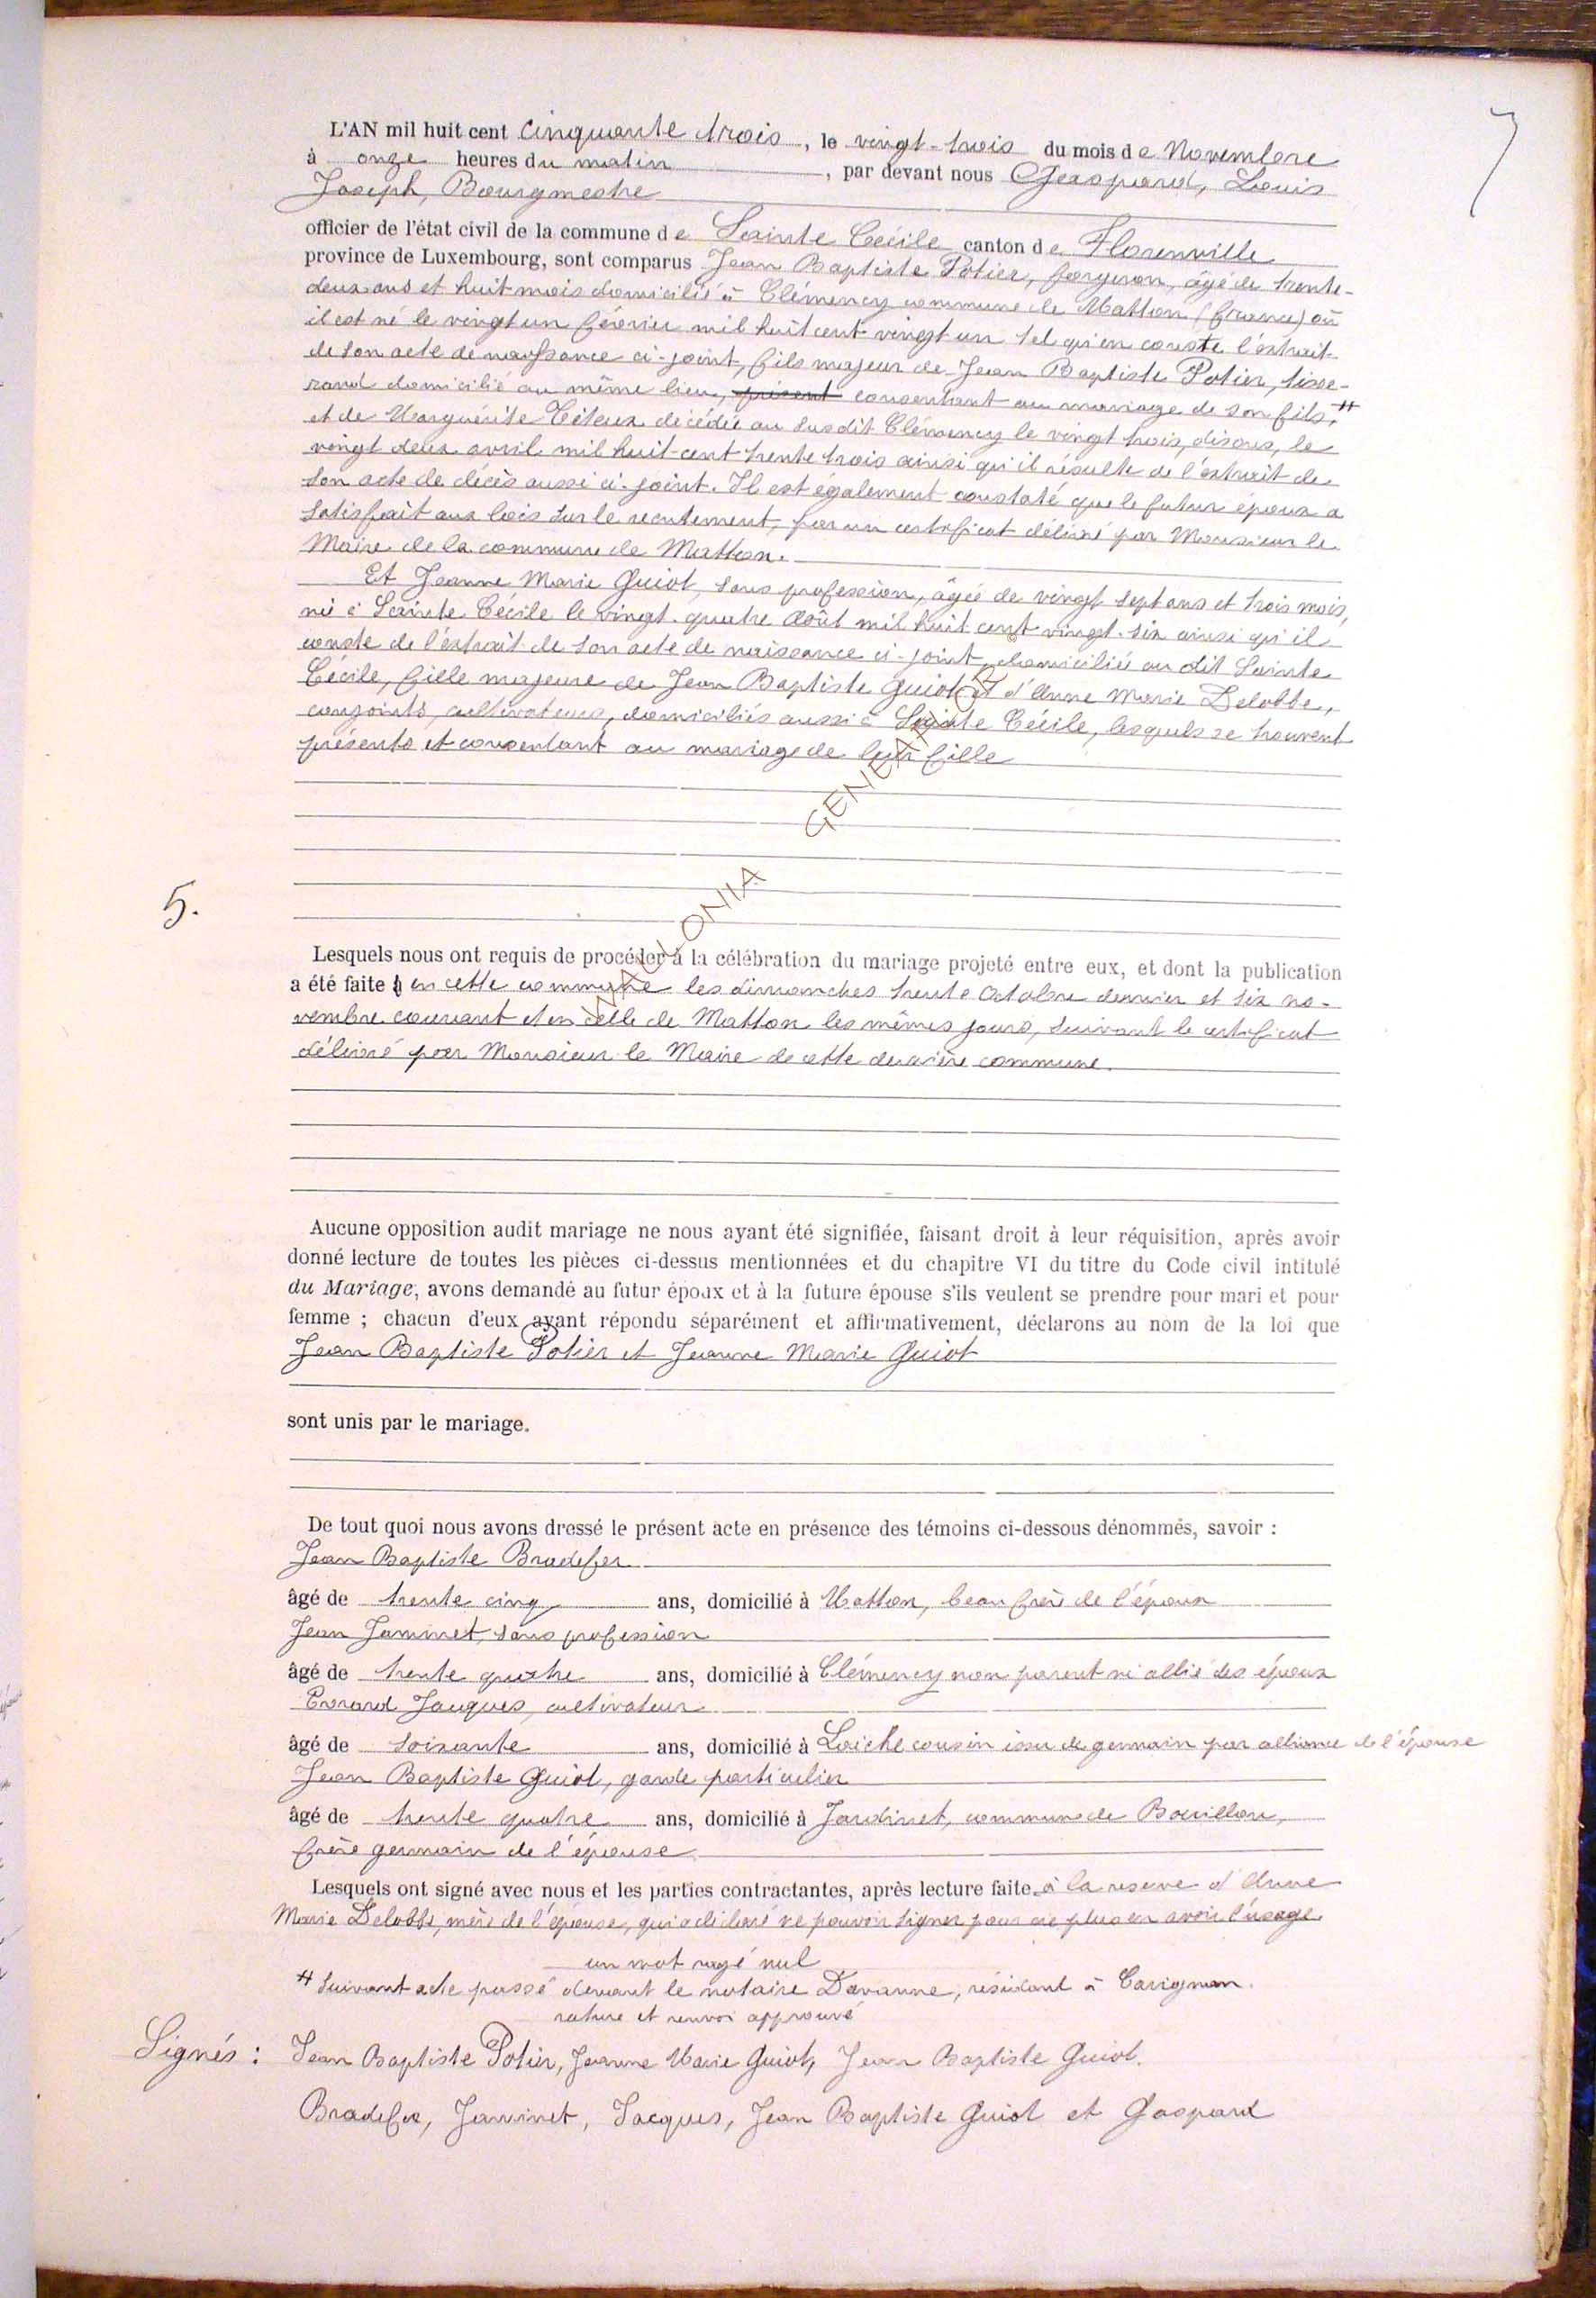 7
L'AN mil huit cent cinquante trois, le vingt-trois du mois de Novembre
à onze heures du matin, par devant nous Gaspard, Louis
Joseph, Bourgmestre
officier de l'état civil de la commune de Sainte Cécile canton de Florenville
province de Luxembourg, sont comparus Jean Baptiste Potier, forgeron, âgé de trente-
deux ans et huit mois domicilié à Clémency commune de Matton (france) où
il est né le vingt un février mil huit cent vingt un tel qu'en conste l'extrait
de son acte de naissance ci-joint, fils majeur de Jean Baptiste Potier, tisse-
rand domicilié au même lieu, présent consentant au mariage de son fils, #
et de Marguérite Téteux décédée au susdit Clémency le vingt trois, disons, le
vingt deux avril mil huit-cent trente trois ainsi qu'il résulte de l'extrait de
son acte de décès aussi ci-joint. Il est également constaté que le futur époux a
satisfait aux lois sur le recrutement, par un certificat délivré par Monsieur le
Maire de la commune de Matton.
Et Jeanne Marie Guiot, sans profession, âgée de vingt sept ans et trois mois,
née à Sainte Cécile le vingt-quatre août mil huit cent vingt-six ainsi qu'il
conste de l'extrait de son acte de naissance ci-joint, domiciliée au dit Sainte
Cécile, fille majeure de Jean Baptiste Guiot et d'Anne Marie Delobbe,
conjoints, cultivateurs, domiciliés aussi à Sainte Cécile, lesquels se trouvent
présents et consentant au mariage de leur fille
WALLONIA GENEA
5.
Lesquels nous ont requis de procéder à la célébration du mariage projeté entre eux, et dont la publication
a été faite en cette commune les dimanches trente octobre dernier et six no-
vembre courant et en celle de Matton les mêmes jours, suivant le certificat
délivré par Monsieur le Maire de cette dernière commune.
Aucune opposition audit mariage ne nous ayant été signifiée, faisant droit à leur réquisition, après avoir
donné lecture de toutes les pièces ci-dessus mentionnées et du chapitre VI du titre du Code civil intitulé
du Mariage, avons demandé au futur époux et à la future épouse s'ils veulent se prendre pour mari et pour
femme ; chacun d'eux ayant répondu séparément et affirmativement, déclarons au nom de la loi que
Jean Baptiste Potier et Jeanne Marie Guiot
sont unis par le mariage.
De tout quoi nous avons dressé le présent acte en présence des témoins ci-dessous dénommés, savoir :
Jean Baptiste Bradefer
âgé de trente cinq ans, domicilié à Matton, beau frère de l'époux
Jean Jaminet, sans profession
âgé de trente quatre ans, domicilié à Clémency non parent ni allié des époux
Evrard Jacques, cultivateur
âgé de soixante ans, domicilié à Laiche cousin issu de germain par alliance de l'épouse
Jean Baptiste Guiot, garde particulier
âgé de trente quatre ans, domicilié à Jardinet, commune de Bouillon,
frère germain de l'épouse
Lesquels ont signé avec nous et les parties contractantes, après lecture faite à la reserve d'Anne
Marie Delobbe, mère de l'épouse, qui a déclaré ne pouvoir signer pour ne plus en avoir l'usage
un mot rayé nul
# suivant acte passé devant le notaire Davanne, résidant à Carignan.
rature et renvoi approuvé
Signés : Jean Baptiste Potier, Jeanne Marie Guiot, Jean Baptiste Guiot.
Bradefer, Jaminet, Jacques, Jean Baptiste Guiot et Gaspard